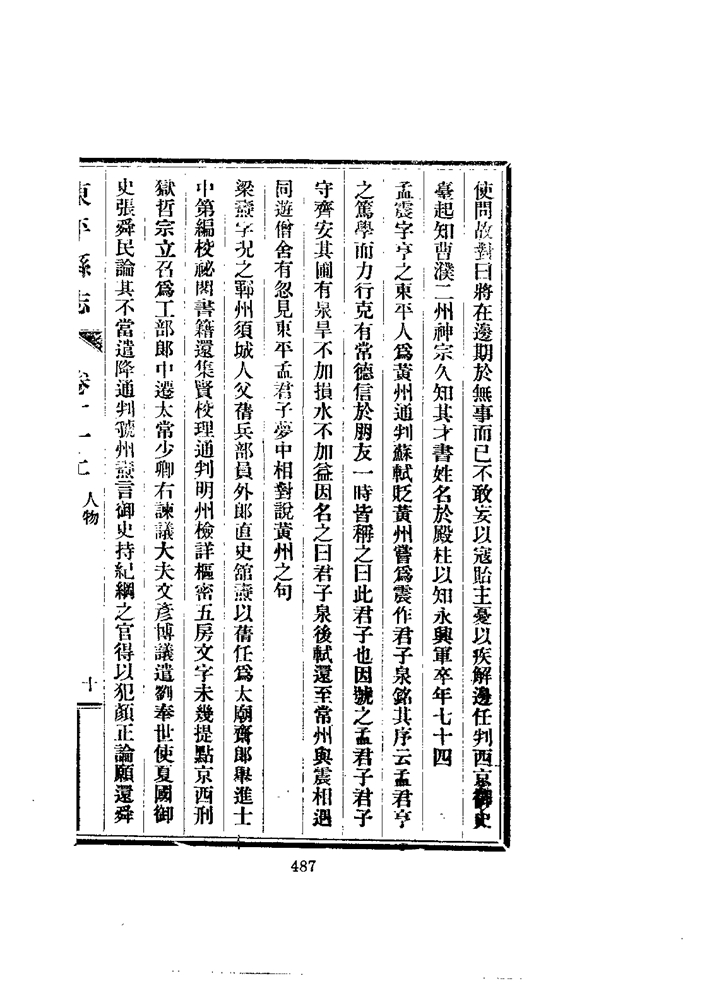 使問故對曰將在邊期於無事而已不敢妄以寇貽主憂以疾解邊任判西京御史
臺起知曹濮二州神宗久知其才書姓名於殿柱以知永興軍卒年七十四
孟震字亨之東平人爲黃州通判蘇軾貶黃州嘗爲震作君子泉銘其序云孟君亨
之篤學而力行克有常德信於朋友一時皆稱之曰此君子也因號之孟君子君子
守齊安其圃有泉旱不加損水不加益因名之曰君子泉後軾還至常州與震相遇
同遊僧舍有忽見東平孟君子夢中相對說黃州之句
梁燾字況之鄆州須城人父蒨兵部員外郎直史舘燾以蒨任爲太廟齋郎舉進士
中第編校祕閣書籍還集賢校理通判明州檢詳樞密五房文字未幾提點京西刑
獄哲宗立召爲工部郎中遷太常少卿右諫議大夫文彥博議遣劉奉世使夏國御
史張舜民論其不當遣降通判虢州燾言御史持紀綱之官得以犯顏正論願還舜
東平縣志 卷十一上 人物 十
487